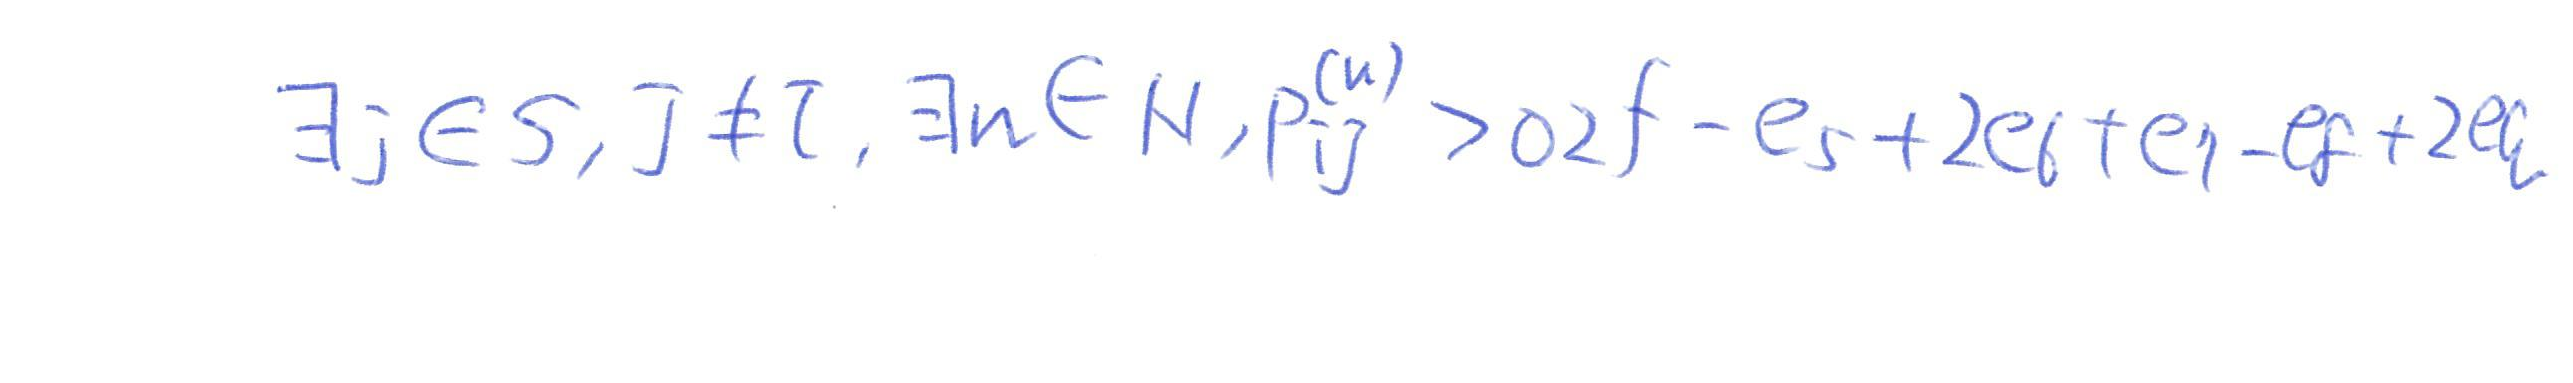 ∃j∈S, j≠i, ∃n∈N, p_{ij}^{(n)} > 0 2f - e_5 + 2e_6 + e_7 - e_8 + 2e_9